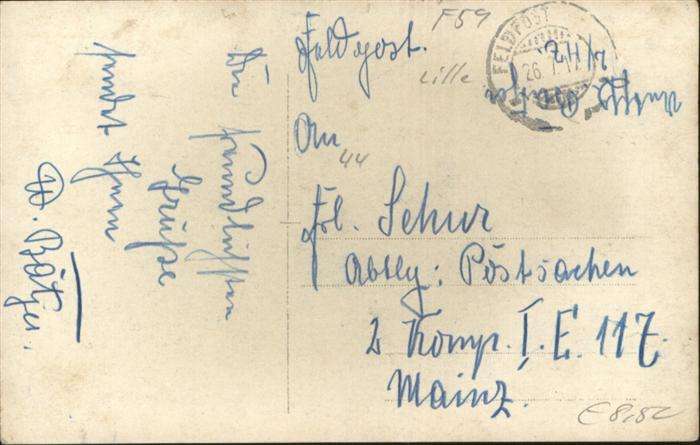 Feldpost.
F59
Lille
FELDPOST
26. 1. 17
An
44
Frl. Schur
Abtlg: Postsachen
2 Komp. I. E. 117.
Mainz.
Die freundlichsten
Grüße
sendet Ihnen
W. Bötzer.